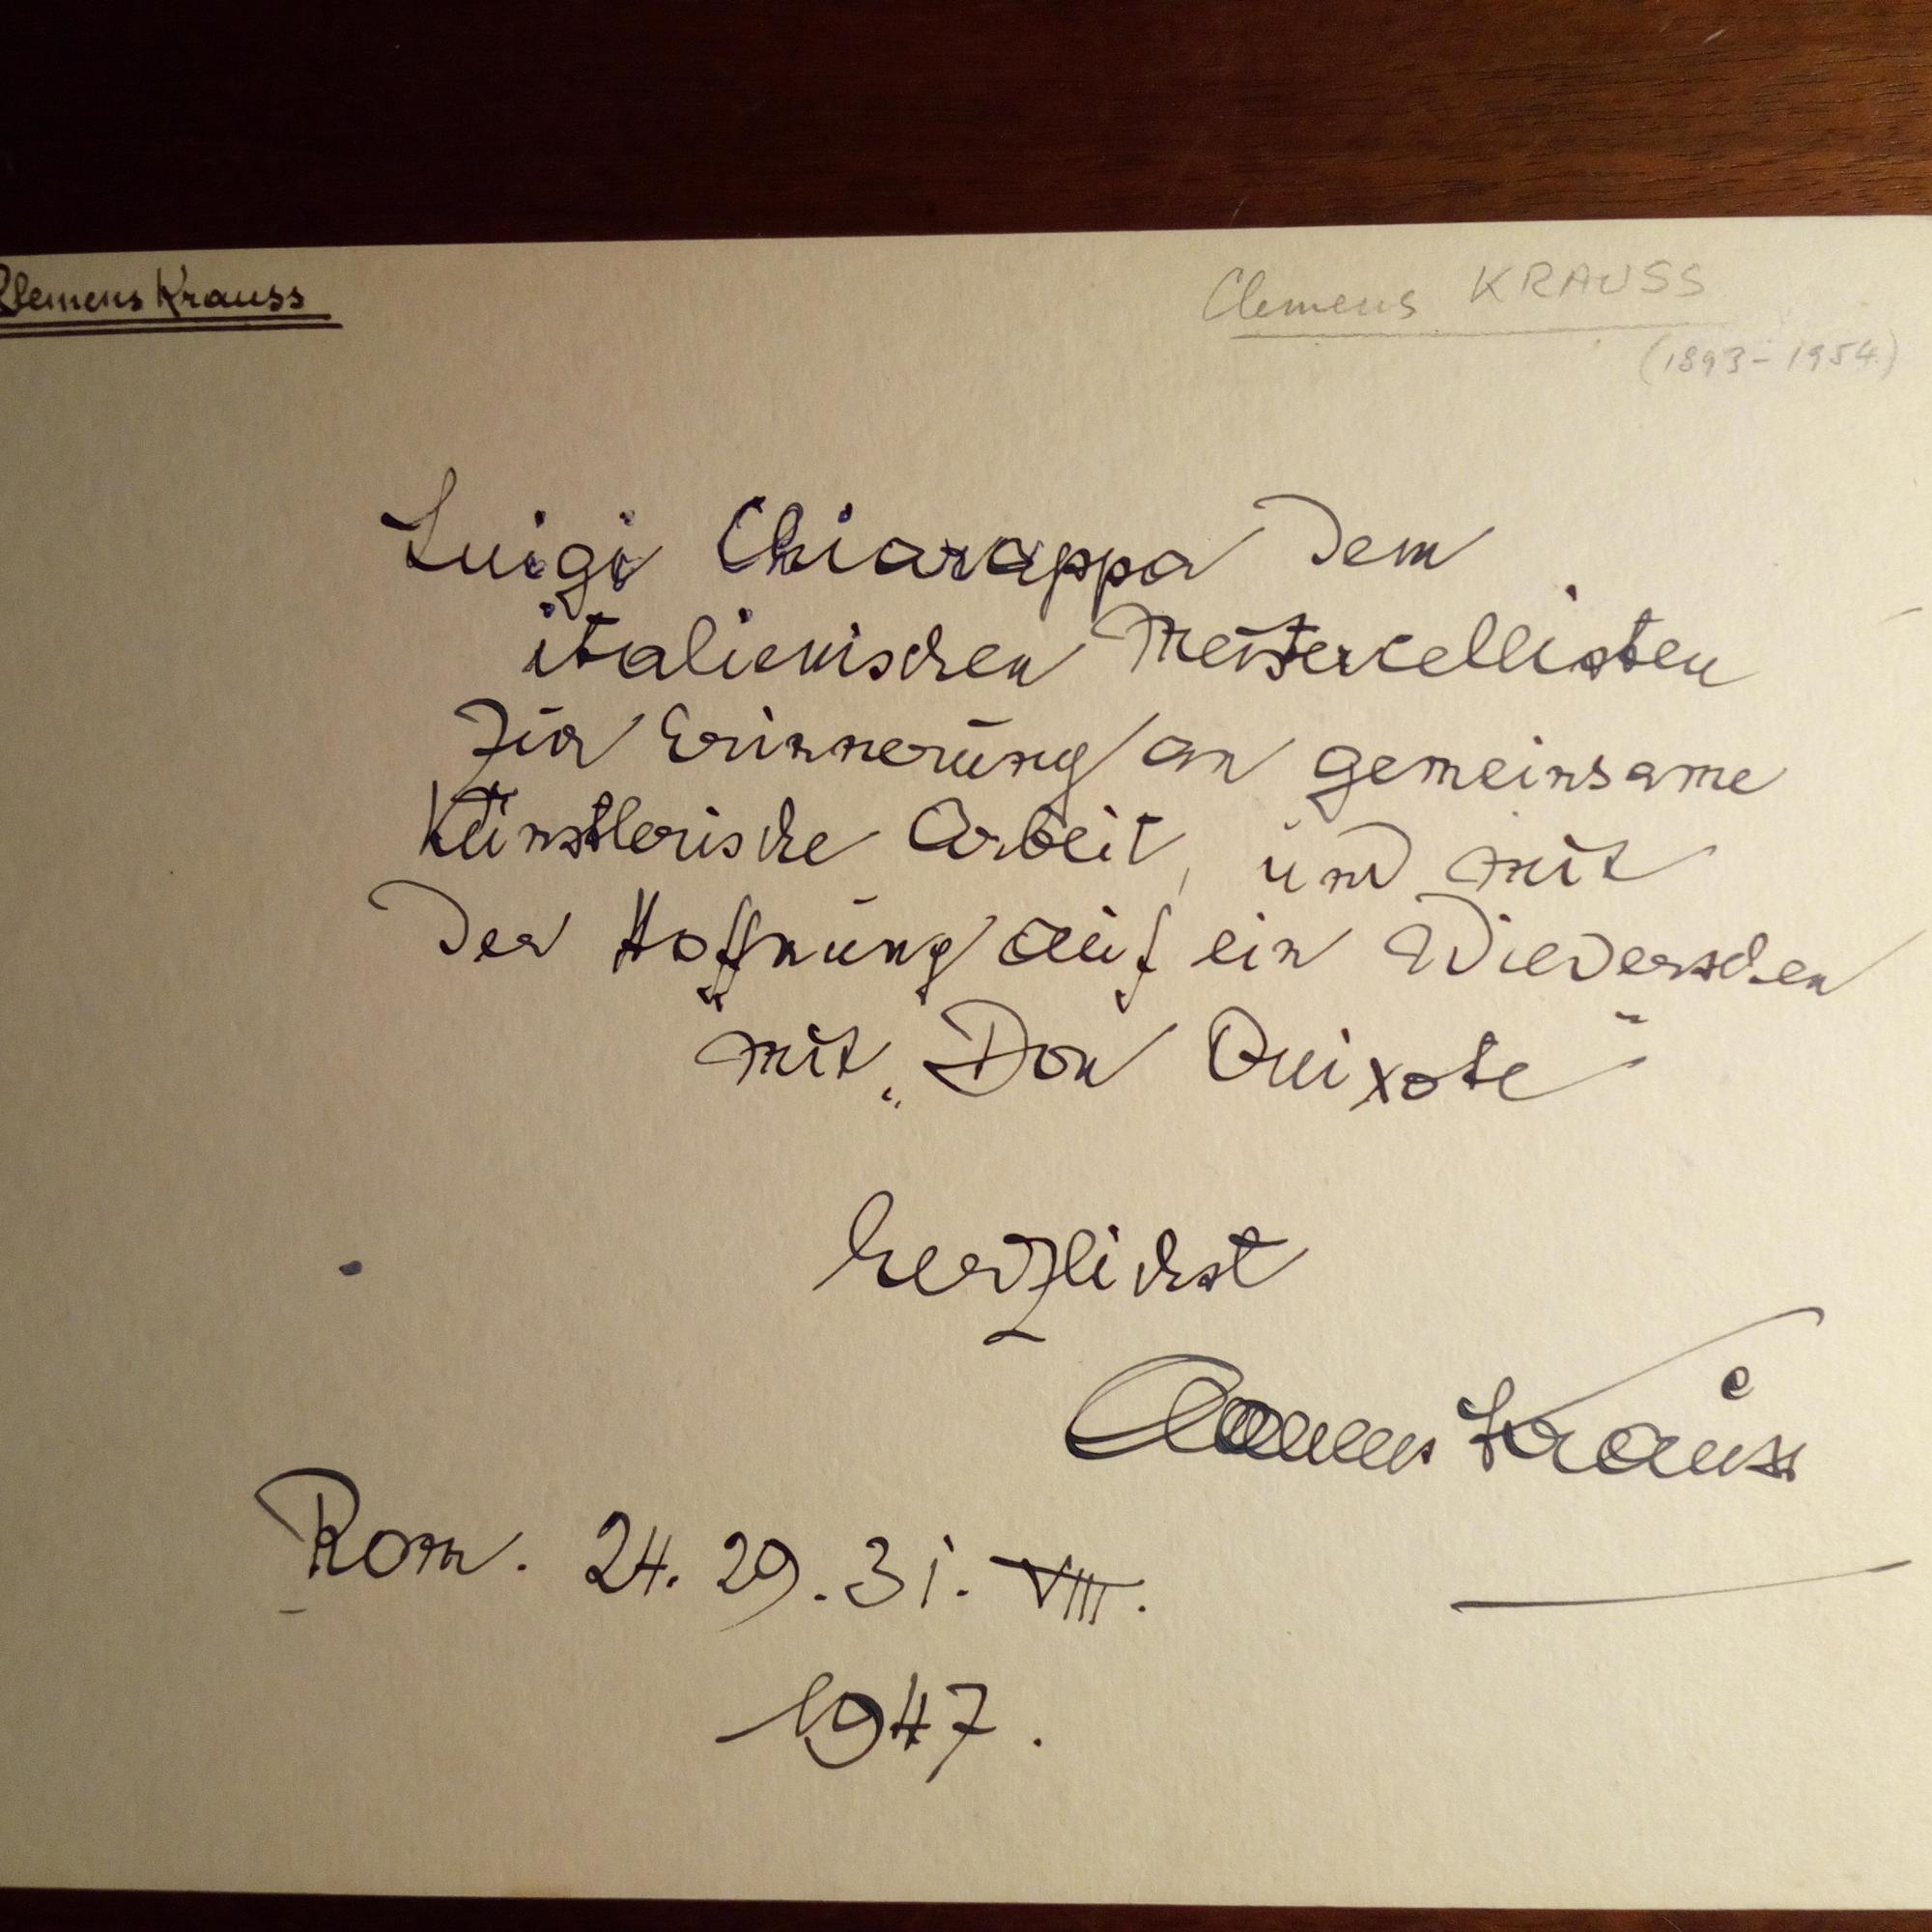 Clemens Krauss
Clemens KRAUSS
(1893-1954)
Luigi Chiarappa dem
italienischen Meistercellisten
zur Erinnerung an gemeinsame
Künstlerische Arbeit, und mit
der Hoffnung auf ein Wiedersehen
mit „Don Quixote"
herzlichst
Clemens Krauss
Rom. 24. 29. 31. VIII.
1947.